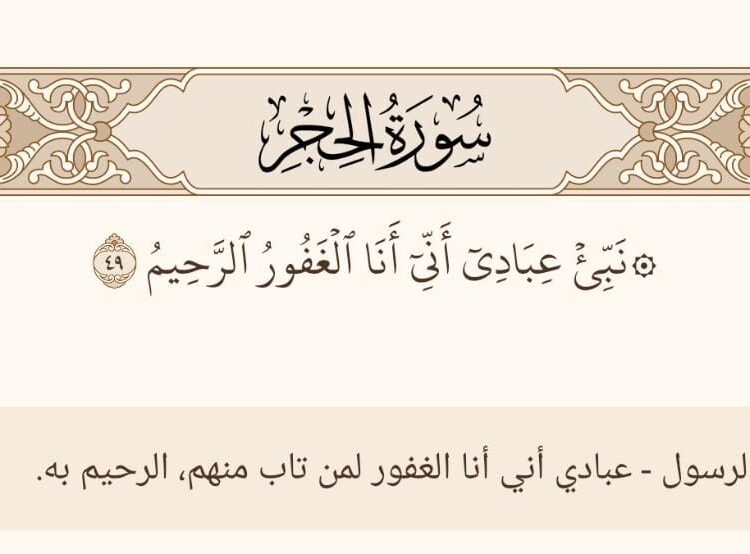 سُورَةُ الحِجْرِ
۞ نَبِّئۡ عِبَادِيٓ أَنِّيٓ أَنَا ٱلۡغَفُورُ ٱلرَّحِيمُ ٤٩
لرسول - عبادي أني أنا الغفور لمن تاب منهم، الرحيم به.